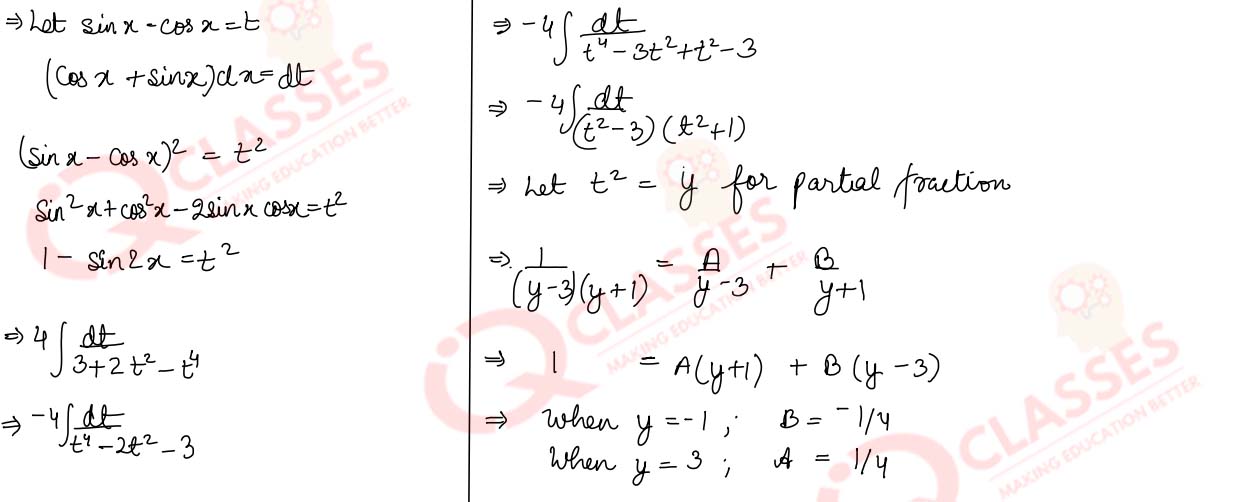 ⇒ Let sin x - cos x = t
(cos x + sin x) dx = dt
(sin x - cos x)² = t²
sin² x + cos² x - 2 sin x cos x = t²
1 - sin 2x = t²
⇒ 4 ∫ dt / 3 + 2t² - t⁴
⇒ -4 ∫ dt / t⁴ - 2t² - 3
⇒ -4 ∫ dt / t⁴ - 3t² + t² - 3
⇒ -4 ∫ dt / (t² - 3) (t² + 1)
⇒ Let t² = y for partial fraction
⇒ 1 / (y - 3)(y + 1) = A / y - 3 + B / y + 1
⇒ 1 = A(y + 1) + B(y - 3)
⇒ When y = -1 ; B = -1/4
When y = 3 ; A = 1/4
IQ CLASSES
MAKING EDUCATION BETTER
IQ CLASSES
MAKING EDUCATION BETTER
IQ CLASSES
MAKING EDUCATION BETTER